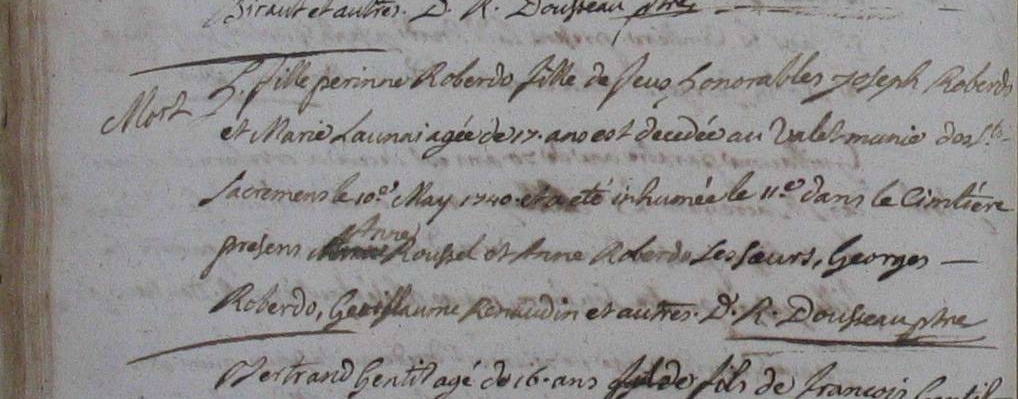 Biraut et autres. D. R. Dousseau ptre
h. fille perinne Roberdo fille de feus honorables Joseph Roberdo
Mort
et Marie Launai agée de 17. ans est decedée au Valet munie des Sts
Sacremens le 10.e May 1740. et a eté inhumée le 11.e dans le Cimtiére
presens Anne Roussel et Anne Roberdo Les sœurs, Georges —
Roberdo, Geuillaume Renaudin et autres. D. R. Dousseau ptre
Bertrand Gentil agé de 16. ans fils de françois Gentil